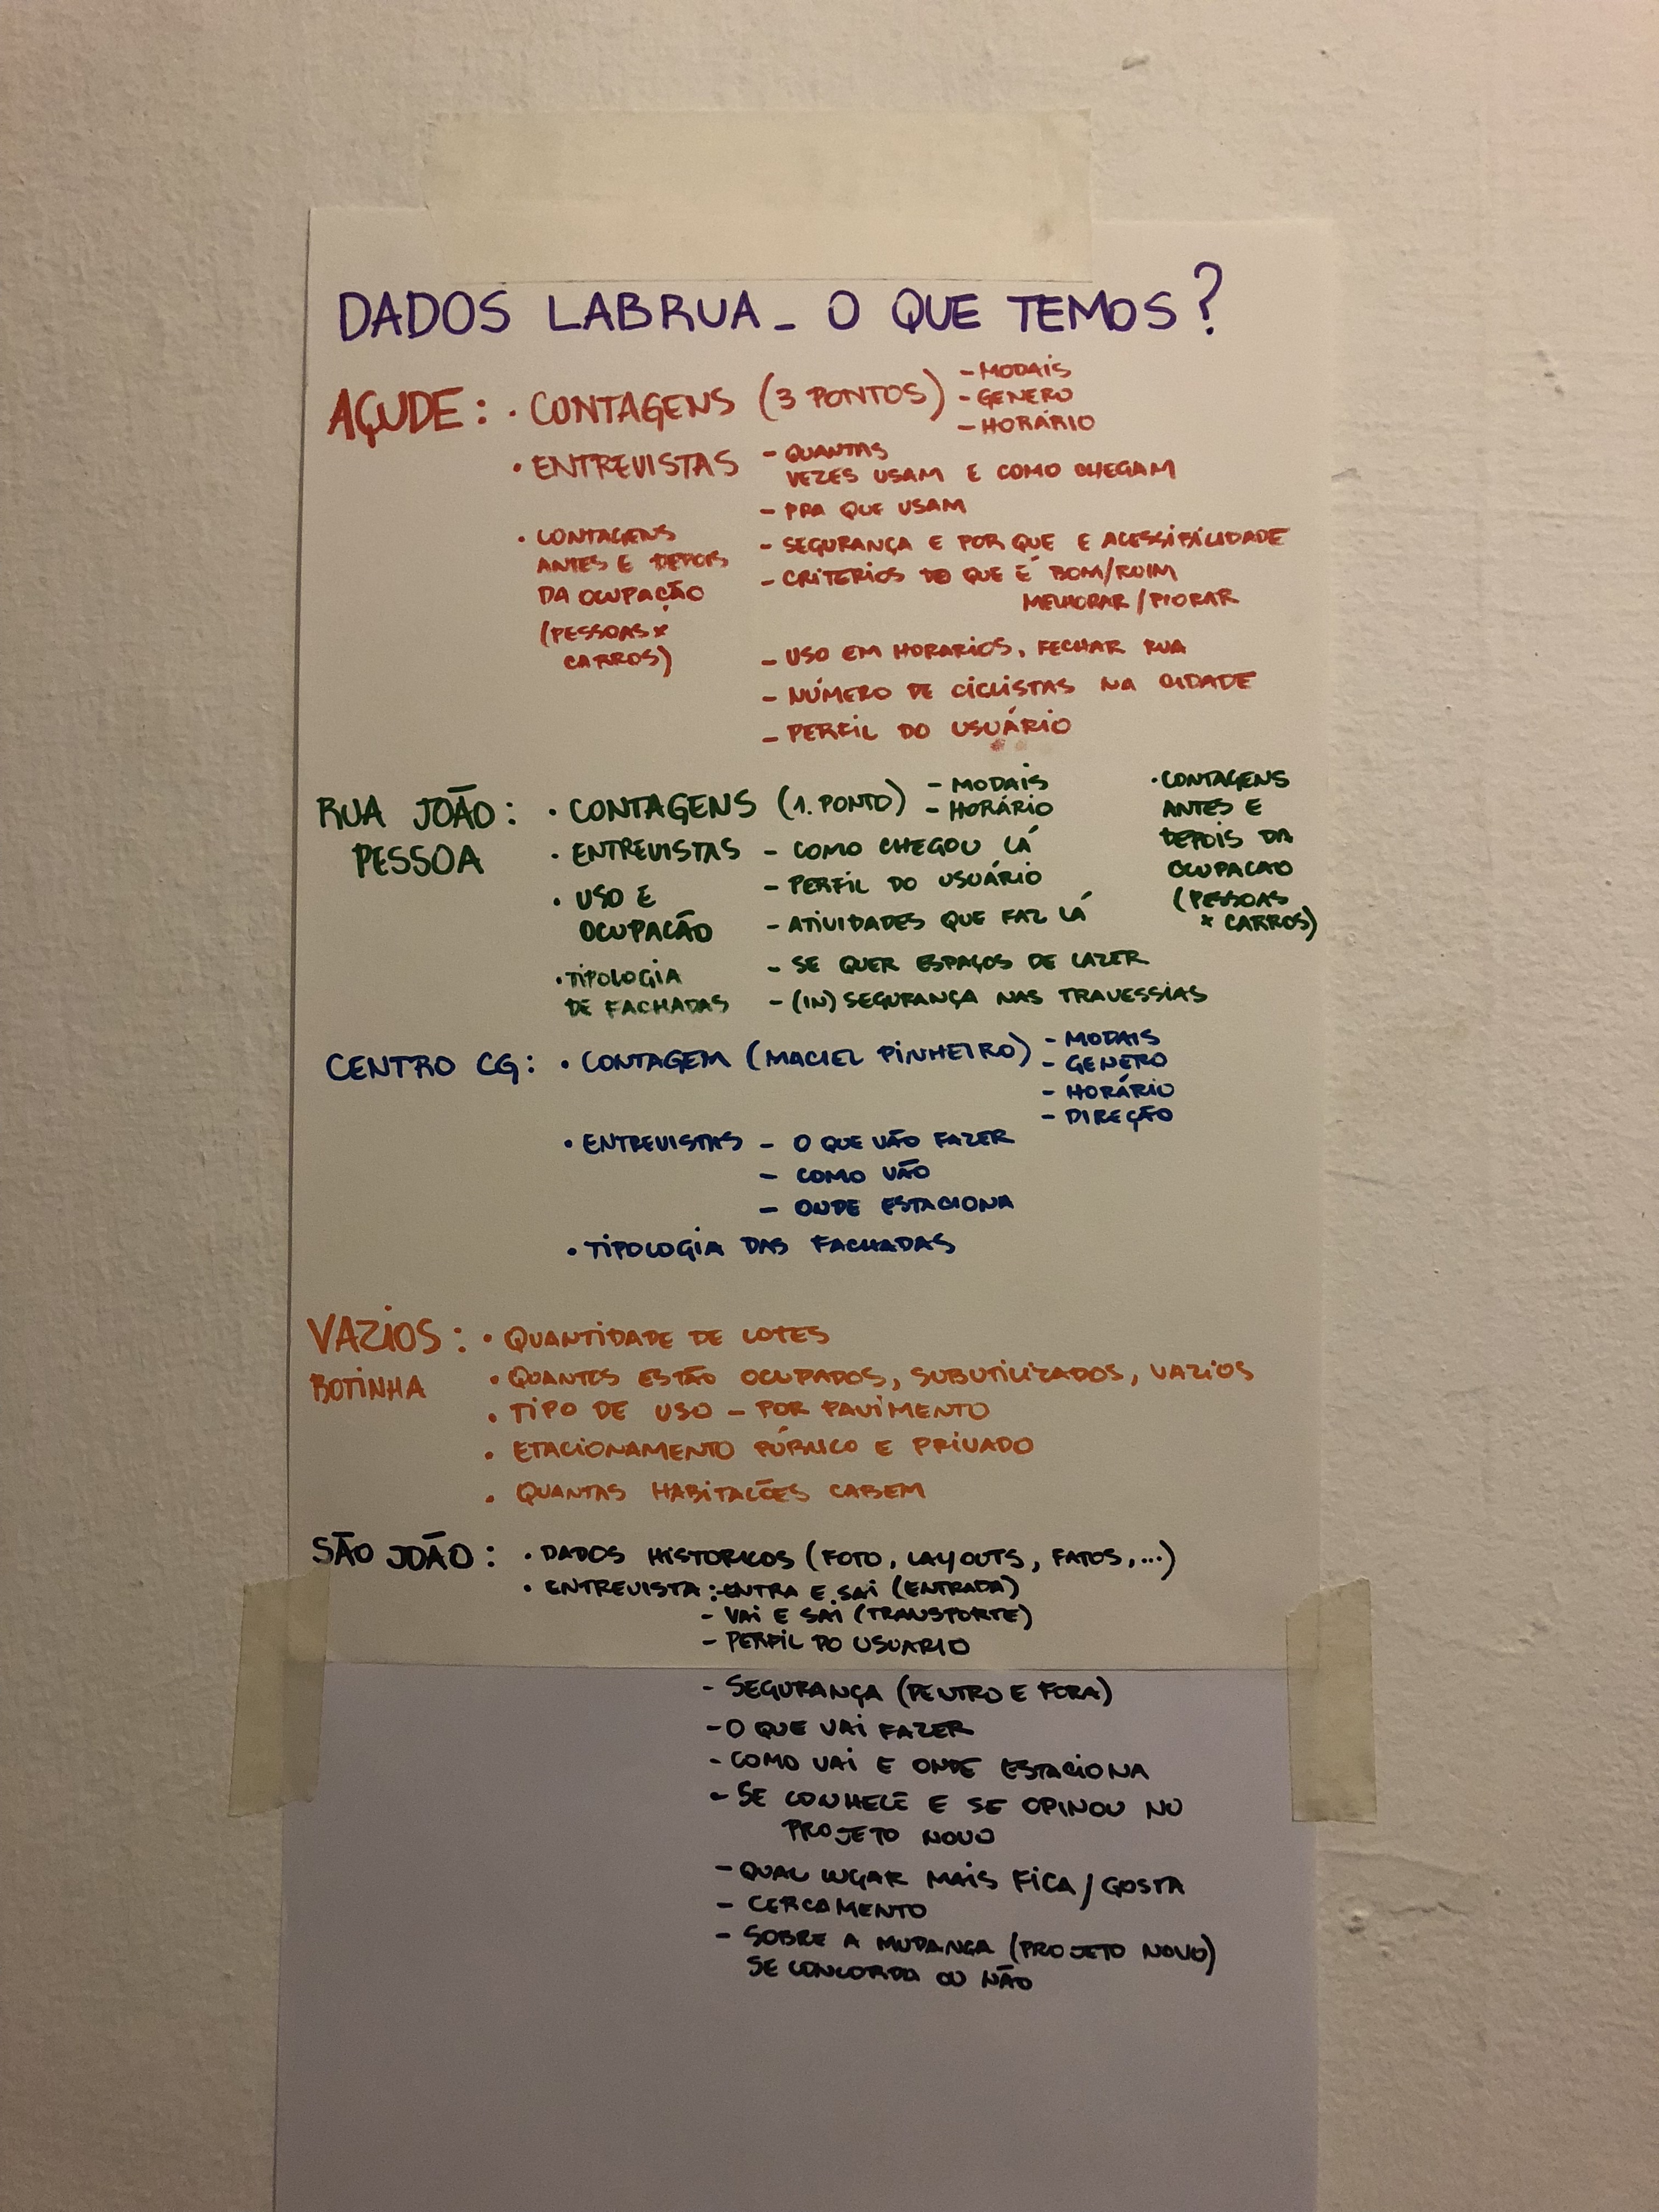 DADOS LABRUA _ O QUE TEMOS?
AÇUDE: · CONTAGENS (3 PONTOS) - MODAIS
- GENERO
- HORÁRIO
· ENTREVISTAS - QUANTAS
VEZES USAM E COMO CHEGAM
- PRA QUE USAM
- SEGURANÇA E POR QUE E ACESSIBILIDADE
- CRITERIOS DO QUE É BOM/RUIM
MELHORAR/PIORAR
- USO EM HORARIOS, FECHAR RUA
- NÚMERO DE CICLISTAS NA CIDADE
- PERFIL DO USUÁRIO
· CONTAGENS
ANTES E DEPOIS
DA OCUPAÇÃO
(PESSOAS x
CARROS)
RUA JOÃO: · CONTAGENS (1. PONTO) - MODAIS
PESSOA
- HORÁRIO
· ENTREVISTAS - COMO CHEGOU LÁ
- PERFIL DO USUÁRIO
- ATIVIDADES QUE FAZ LÁ
- SE QUER ESPAÇOS DE LAZER
- (IN) SEGURANÇA NAS TRAVESSIAS
· USO E
OCUPACÃO
· TIPOLOGIA
DE FACHADAS
· CONTAGENS
ANTES E
DEPOIS DA
OCUPACAO
(PESSOAS
x CARROS)
CENTRO CG: · CONTAGEM (MACIEL PINHEIRO) - MODAIS
- GENERO
- HORÁRIO
- DIREÇÃO
· ENTREVISTAS - O QUE VÃO FAZER
- COMO VÃO
- ONDE ESTACIONA
· TIPOLOGIA DAS FACHADAS
VAZIOS: · QUANTIDADE DE LOTES
BOTINHA
· QUANTOS ESTÃO OCUPADOS, SUBUTILIZADOS, VAZIOS
· TIPO DE USO - POR PAVIMENTO
· ETACIONAMENTO PÚBLICO E PRIVADO
· QUANTAS HABITACÕES CABEM
SÃO JOÃO: · DADOS HISTORICOS (FOTO, LAYOUTS, FATOS,...)
· ENTREVISTA: - ENTRA E SAI (ENTRADA)
- VAI E SAI (TRANSPORTE)
- PERFIL DO USUARIO
- SEGURANÇA (DENTRO E FORA)
- O QUE VAI FAZER
- COMO VAI E ONDE ESTACIONA
- SE CONHECE E SE OPINOU NO
PROJETO NOVO
- QUAL LUGAR MAIS FICA/GOSTA
- CERCAMENTO
- SOBRE A MUDANÇA (PROJETO NOVO)
SE CONCORDA OU NÃO